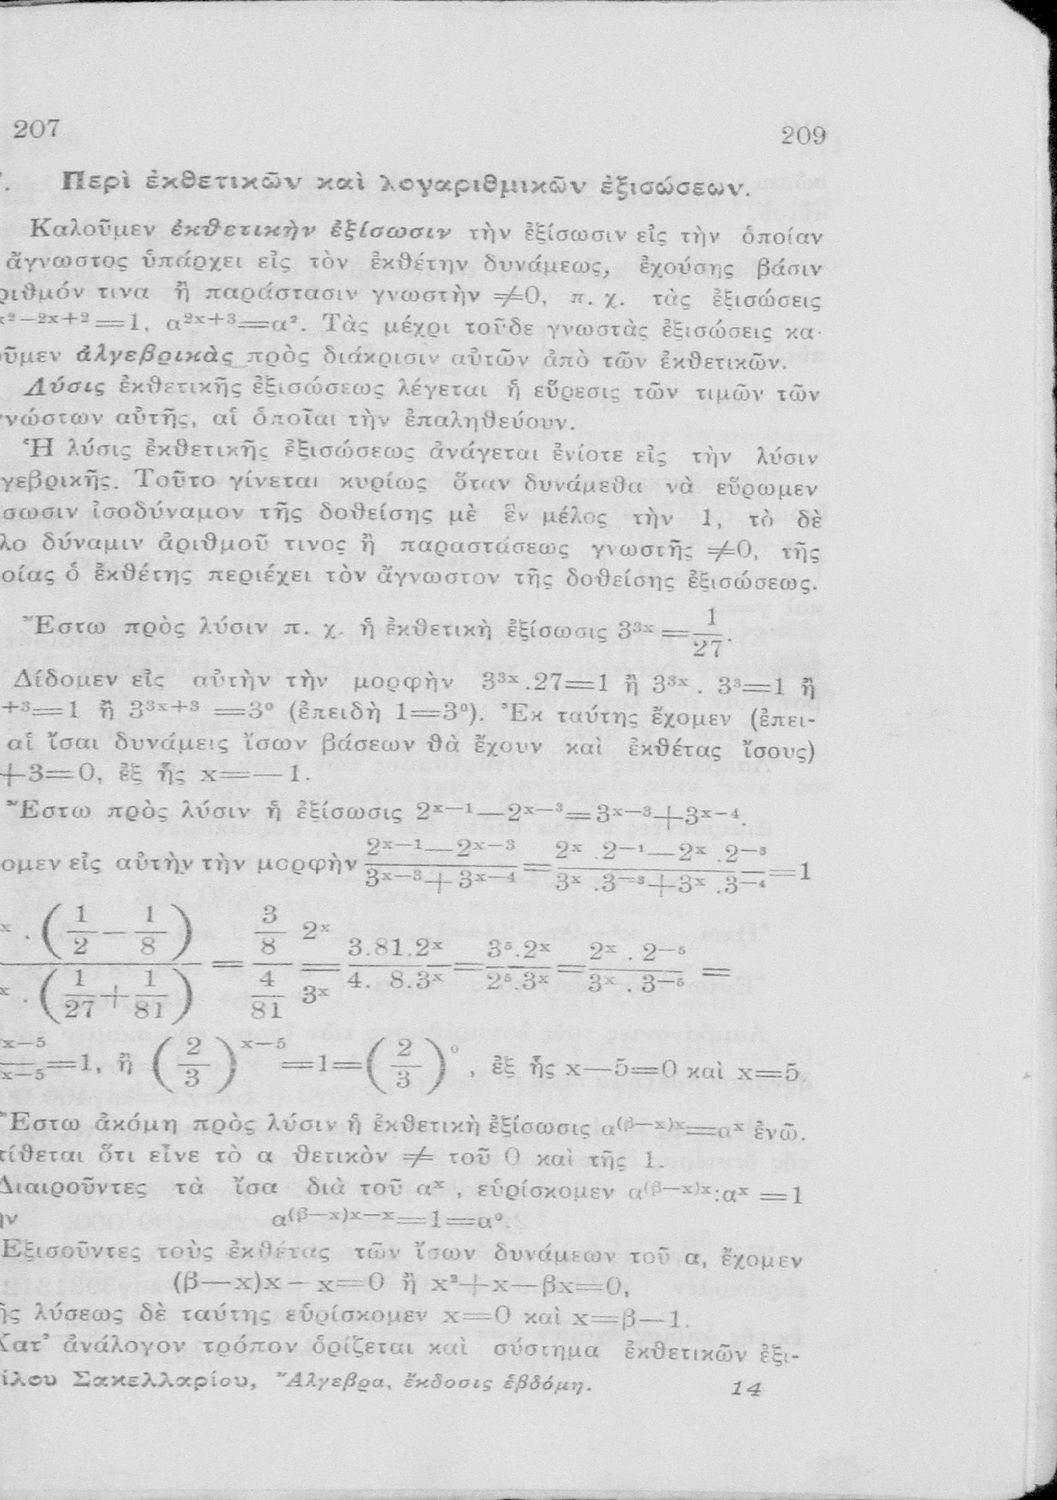 207 209
Περὶ ἐκθετικῶν καὶ λογαριθμικῶν ἐξισώσεων.
Καλοῦμεν ἐκθετικὴν ἐξίσωσιν τὴν ἐξίσωσιν εἰς τὴν ὁποίαν
ἄγνωστος ὑπάρχει εἰς τὸν ἐκθέτην δυνάμεως, ἐχούσης βάσιν
ριθμόν τινα ἢ παράστασιν γνωστὴν ≠0, π. χ. τὰς ἐξισώσεις
x²⁻²ˣ⁺²=1, α²ˣ⁺³=α². Τὰς μέχρι τοῦδε γνωστὰς ἐξισώσεις κα-
οῦμεν ἀλγεβρικὰς πρὸς διάκρισιν αὐτῶν ἀπὸ τῶν ἐκθετικῶν.
Λύσις ἐκθετικῆς ἐξισώσεως λέγεται ἡ εὕρεσις τῶν τιμῶν τῶν
γνώστων αὐτῆς, αἱ ὁποῖαι τὴν ἐπαληθεύουν.
Ἡ λύσις ἐκθετικῆς ἐξισώσεως ἀνάγεται ἐνίοτε εἰς τὴν λύσιν
γεβρικῆς. Τοῦτο γίνεται κυρίως ὅταν δυνάμεθα νὰ εὕρωμεν
σωσιν ἰσοδύναμον τῆς δοθείσης μὲ ἓν μέλος τὴν 1, τὸ δὲ
λο δύναμιν ἀριθμοῦ τινος ἢ παραστάσεως γνωστῆς ≠0, τῆς
οίας ὁ ἐκθέτης περιέχει τὸν ἄγνωστον τῆς δοθείσης ἐξισώσεως.
Ἔστω πρὸς λύσιν π. χ. ἡ ἐκθετικὴ ἐξίσωσις 3³ˣ=1/27.
Δίδομεν εἰς αὐτὴν τὴν μορφὴν 3³ˣ.27=1 ἢ 3³ˣ . 3³=1 ἢ
⁺³=1 ἢ 3³ˣ⁺³ =3⁰ (ἐπειδὴ 1=3⁰). Ἐκ ταύτης ἔχομεν (ἐπει-
αἱ ἴσαι δυνάμεις ἴσων βάσεων θὰ ἔχουν καὶ ἐκθέτας ἴσους)
+3=0, ἐξ ἧς x=—1.
Ἔστω πρὸς λύσιν ἡ ἐξίσωσις 2ˣ⁻¹—2ˣ⁻³=3ˣ⁻³+3ˣ⁻⁴.
ομεν εἰς αὐτὴν τὴν μορφὴν (2ˣ⁻¹—2ˣ⁻³)/(3ˣ⁻³+3ˣ⁻⁴)=(2ˣ .2⁻¹—2ˣ .2⁻³)/(3ˣ .3⁻³+3ˣ .3⁻⁴)=1
ˣ . (1/2—1/8) / ˣ . (1/27+1/81) = (3/8)/(4/81) 2ˣ/3ˣ = 3.81.2ˣ/4. 8.3ˣ = 3⁵.2ˣ/2⁵.3ˣ = 2ˣ . 2⁻⁵/3ˣ . 3⁻⁵ =
ˣ⁻⁵/ˣ⁻⁵=1, ἢ (2/3)ˣ⁻⁵=1=(2/3)⁰, ἐξ ἧς x—5=0 καὶ x=5.
Ἔστω ἀκόμη πρὸς λύσιν ἡ ἐκθετικὴ ἐξίσωσις α⁽ᵝ⁻ˣ⁾ˣ=αˣ ἐνῶ.
τίθεται ὅτι εἶνε τὸ α θετικὸν ≠ τοῦ 0 καὶ τῆς 1.
Διαιροῦντες τὰ ἴσα διὰ τοῦ αˣ , εὑρίσκομεν α⁽ᵝ⁻ˣ⁾ˣ:αˣ =1
ὴν α⁽ᵝ⁻ˣ⁾ˣ⁻ˣ=1=α⁰.
Ἐξισοῦντες τοὺς ἐκθέτας τῶν ἴσων δυνάμεων τοῦ α, ἔχομεν
(β—x)x—x=0 ἢ x²+x—βx=0,
ῆς λύσεως δὲ ταύτης εὑρίσκομεν x=0 καὶ x=β—1.
Κατ' ἀνάλογον τρόπον ὁρίζεται καὶ σύστημα ἐκθετικῶν ἐξι-
ίλου Σακελλαρίου, Ἄλγεβρα, ἔκδοσις ἑβδόμη. 14